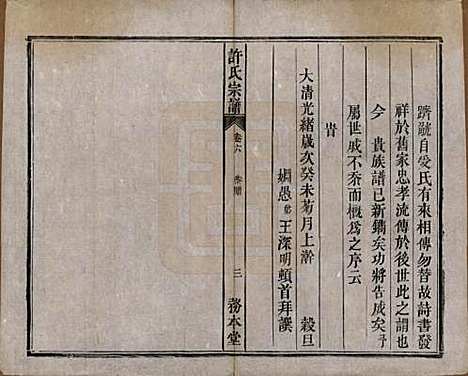 躋毓自爰氏有來相傳勿替故詩書發
祥於舊家忠孝流傳於後世此之謂也
今 貴族譜已新鐫矣功將告成矣予
屬世戚不忝而概為之序云
旹
大清光緒歲次癸未菊月上澣 穀旦
姻愚 王深明頓首拜譔
許氏宗譜 卷六 三 務本堂